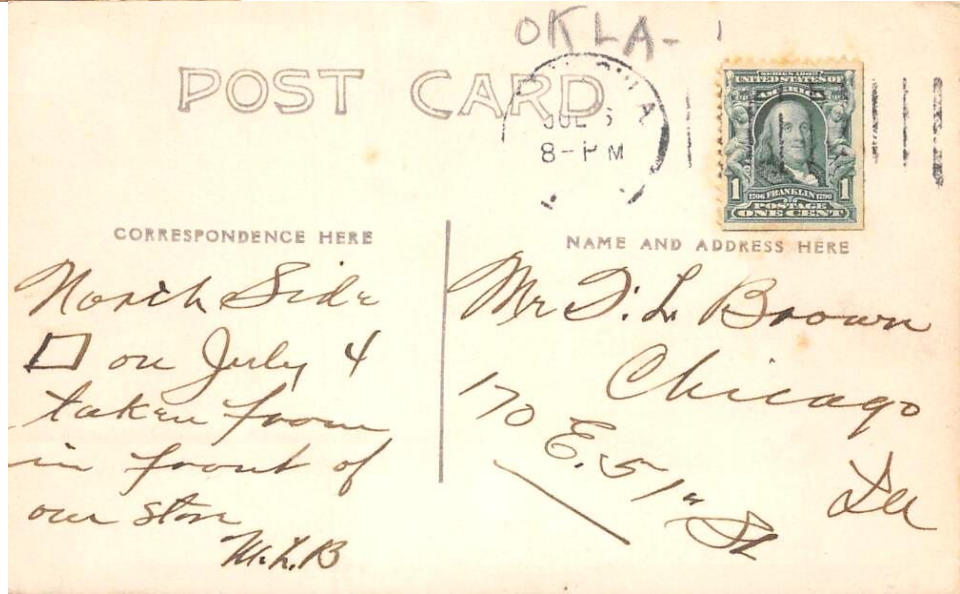 OKLA-
POST CARD
JUL 5
8-PM
SERIES 1902
UNITED STATES OF
AMERICA
1 1706 FRANKLIN 1790 1
POSTAGE
ONE CENT
CORRESPONDENCE HERE
North Side
□ on July 4
taken from
in front of
our store
M.L.B
NAME AND ADDRESS HERE
Mr L Brown
Chicago
170 E. 51st St
Ill